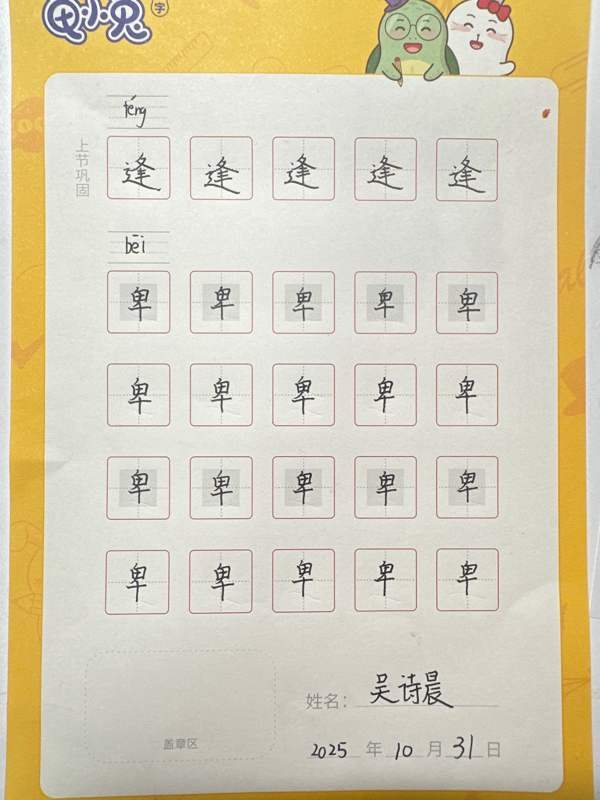 龟小兔 字
féng
上节巩固
逢 逢 逢 逢 逢
bēi
卑 卑 卑 卑 卑
卑 卑 卑 卑 卑
卑 卑 卑 卑 卑
卑 卑 卑 卑 卑
姓名: 吴诗晨
盖章区
2025 年 10 月 31 日